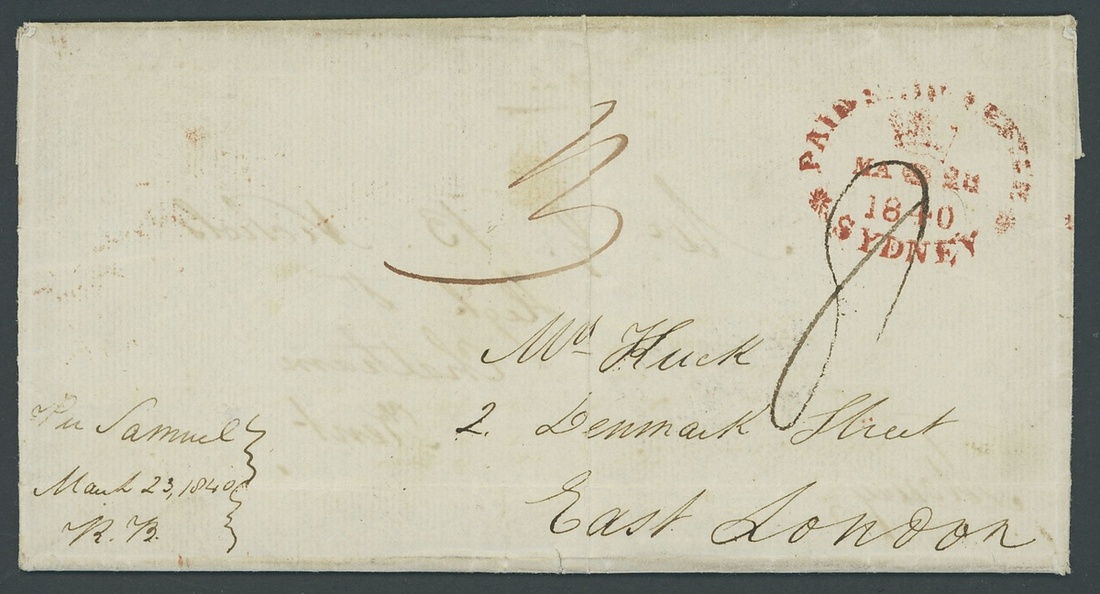 3
PAID SHIP LETTER
MA 24
1840
SYDNEY
8
Mrs Huck
2. Denmark Street
East London
Per Samuel
March 23, 1840
R. B.
Chatham
Kent